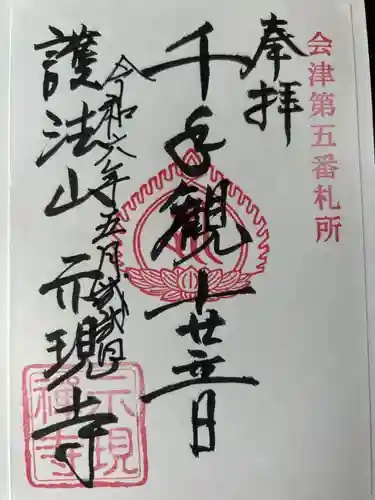 会津第五番札所
奉拝
千手観世音
令和六年五月
護法山 示現寺
示現
禅寺